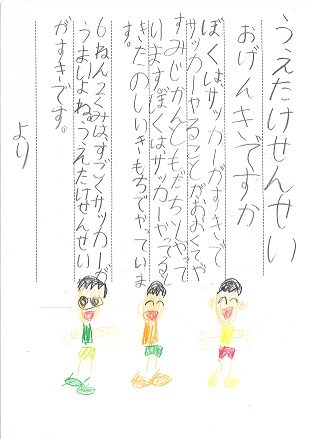 うえたけせんせい
おげんきですか
ぼくはサッカーがすきで
サッカーやることがおおくてや
すみじかんともだちとやって
います。ぼくはサッカーやってると
きたのしいきもちでやっていま
す。
6ねん2くみはすごくサッカーが
うまいよね。うえたけせんせい
がすきです。
より